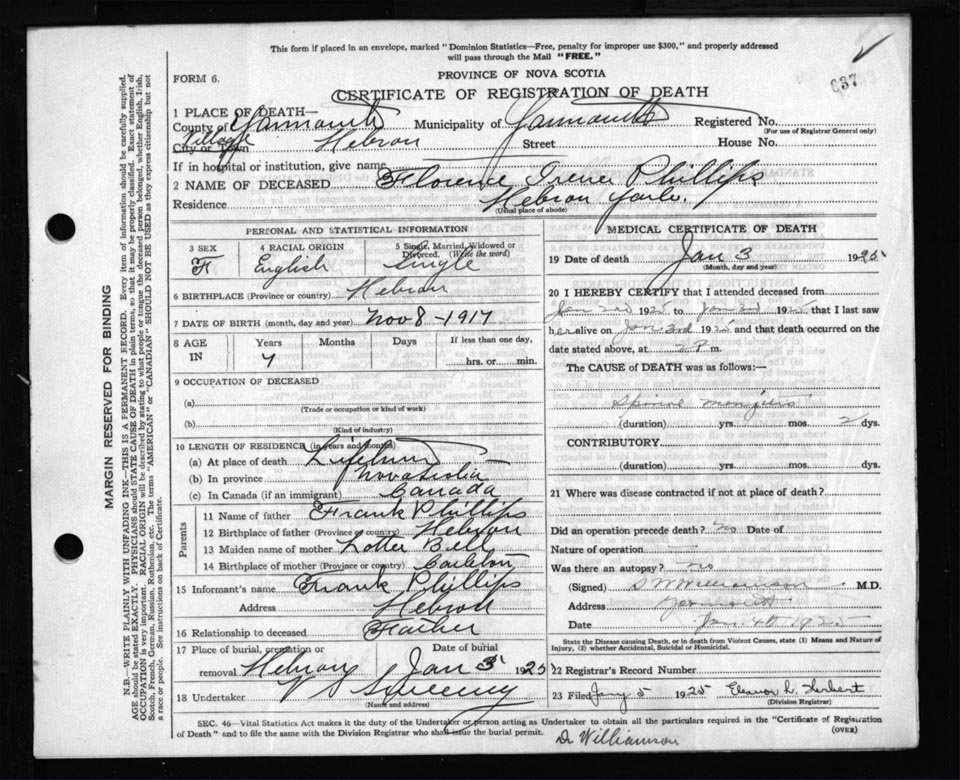 This form if placed in an envelope, marked "Dominion Statistics—Free, penalty for improper use $300," and properly addressed
will pass through the Mail "FREE."
FORM 6.
PROVINCE OF NOVA SCOTIA
CERTIFICATE OF REGISTRATION OF DEATH
1 PLACE OF DEATH—
County of Yarmouth Municipality of Yarmouth Registered No.
(For use of Registrar General only)
Village
City or Town Hebron Street House No.
If in hospital or institution, give name
2 NAME OF DECEASED Florence Irene Phillips
Residence Hebron Yar Co.
(Usual place of abode)
PERSONAL AND STATISTICAL INFORMATION
3 SEX 4 RACIAL ORIGIN 5 Single, Married, Widowed or Divorced. (Write the word)
F English Single
6 BIRTHPLACE (Province or country) Hebron
7 DATE OF BIRTH (month, day and year) Nov 8 - 1917
8 AGE IN Years Months Days If less than one day,
7 hrs. or min.
9 OCCUPATION OF DECEASED
(a)
(Trade or occupation or kind of work)
(b)
(Kind of industry)
10 LENGTH OF RESIDENCE (in years and months)
(a) At place of death Lifetime
(b) In province Nova Scotia
(c) In Canada (if an immigrant) Canada
Parents
11 Name of father Frank Phillips
12 Birthplace of father (Province or country) Hebron
13 Maiden name of mother Lottie Bell
14 Birthplace of mother (Province or country) Carleton
15 Informant's name Frank Phillips
Address Hebron
16 Relationship to deceased Father
17 Place of burial, cremation or removal Date of burial
Hebron Jan 1925
18 Undertaker V S Sweeny
(Name and address)
MEDICAL CERTIFICATE OF DEATH
19 Date of death Jan 3 1925
(Month, day and year)
20 I HEREBY CERTIFY that I attended deceased from
Jan 2nd 1925 to Jan 3rd 1925 that I last saw
her alive on Jan 3rd 1925 and that death occurred on the
date stated above, at 2 P m.
The CAUSE of DEATH was as follows:—
Spinal
(duration) yrs. mos. 2 dys.
CONTRIBUTORY
(duration) yrs. mos. dys.
21 Where was disease contracted if not at place of death?
Did an operation precede death? No Date of
Nature of operation
Was there an autopsy? No
(Signed) Williamson M.D.
Address Yarmouth
Date Jan 4th 1925
State the Disease causing Death, or in death from Violent Causes, state (1) Means and Nature of
Injury, (2) whether Accidental, Suicidal or Homicidal.
22 Registrar's Record Number
23 Filed Jany 5 1925 Eleanor L. Herbert
(Division Registrar)
SEC. 46—Vital Statistics Act makes it the duty of the Undertaker or person acting as Undertaker to obtain all the particulars required in the "Certificate of Registration
of Death" and to file the same with the Division Registrar who shall issue the burial permit.
(OVER)
Dr Williamson
MARGIN RESERVED FOR BINDING
N.B.—WRITE PLAINLY WITH UNFADING INK—THIS IS A PERMANENT RECORD. Every item of information should be carefully supplied.
AGE should be stated EXACTLY. PHYSICIANS should STATE CAUSE OF DEATH in plain terms, so that it may be properly classified. Exact statement of
OCCUPATION is very important. RACIAL ORIGIN will be described by stating to what people or tongue the deceased person belonged, whether English, Irish,
Scotch, French, German, Russian, Ruthenian, etc. The terms "AMERICAN" or "CANADIAN" SHOULD NOT BE USED as they express citizenship but not
a race or people. See instructions on back of Certificate.